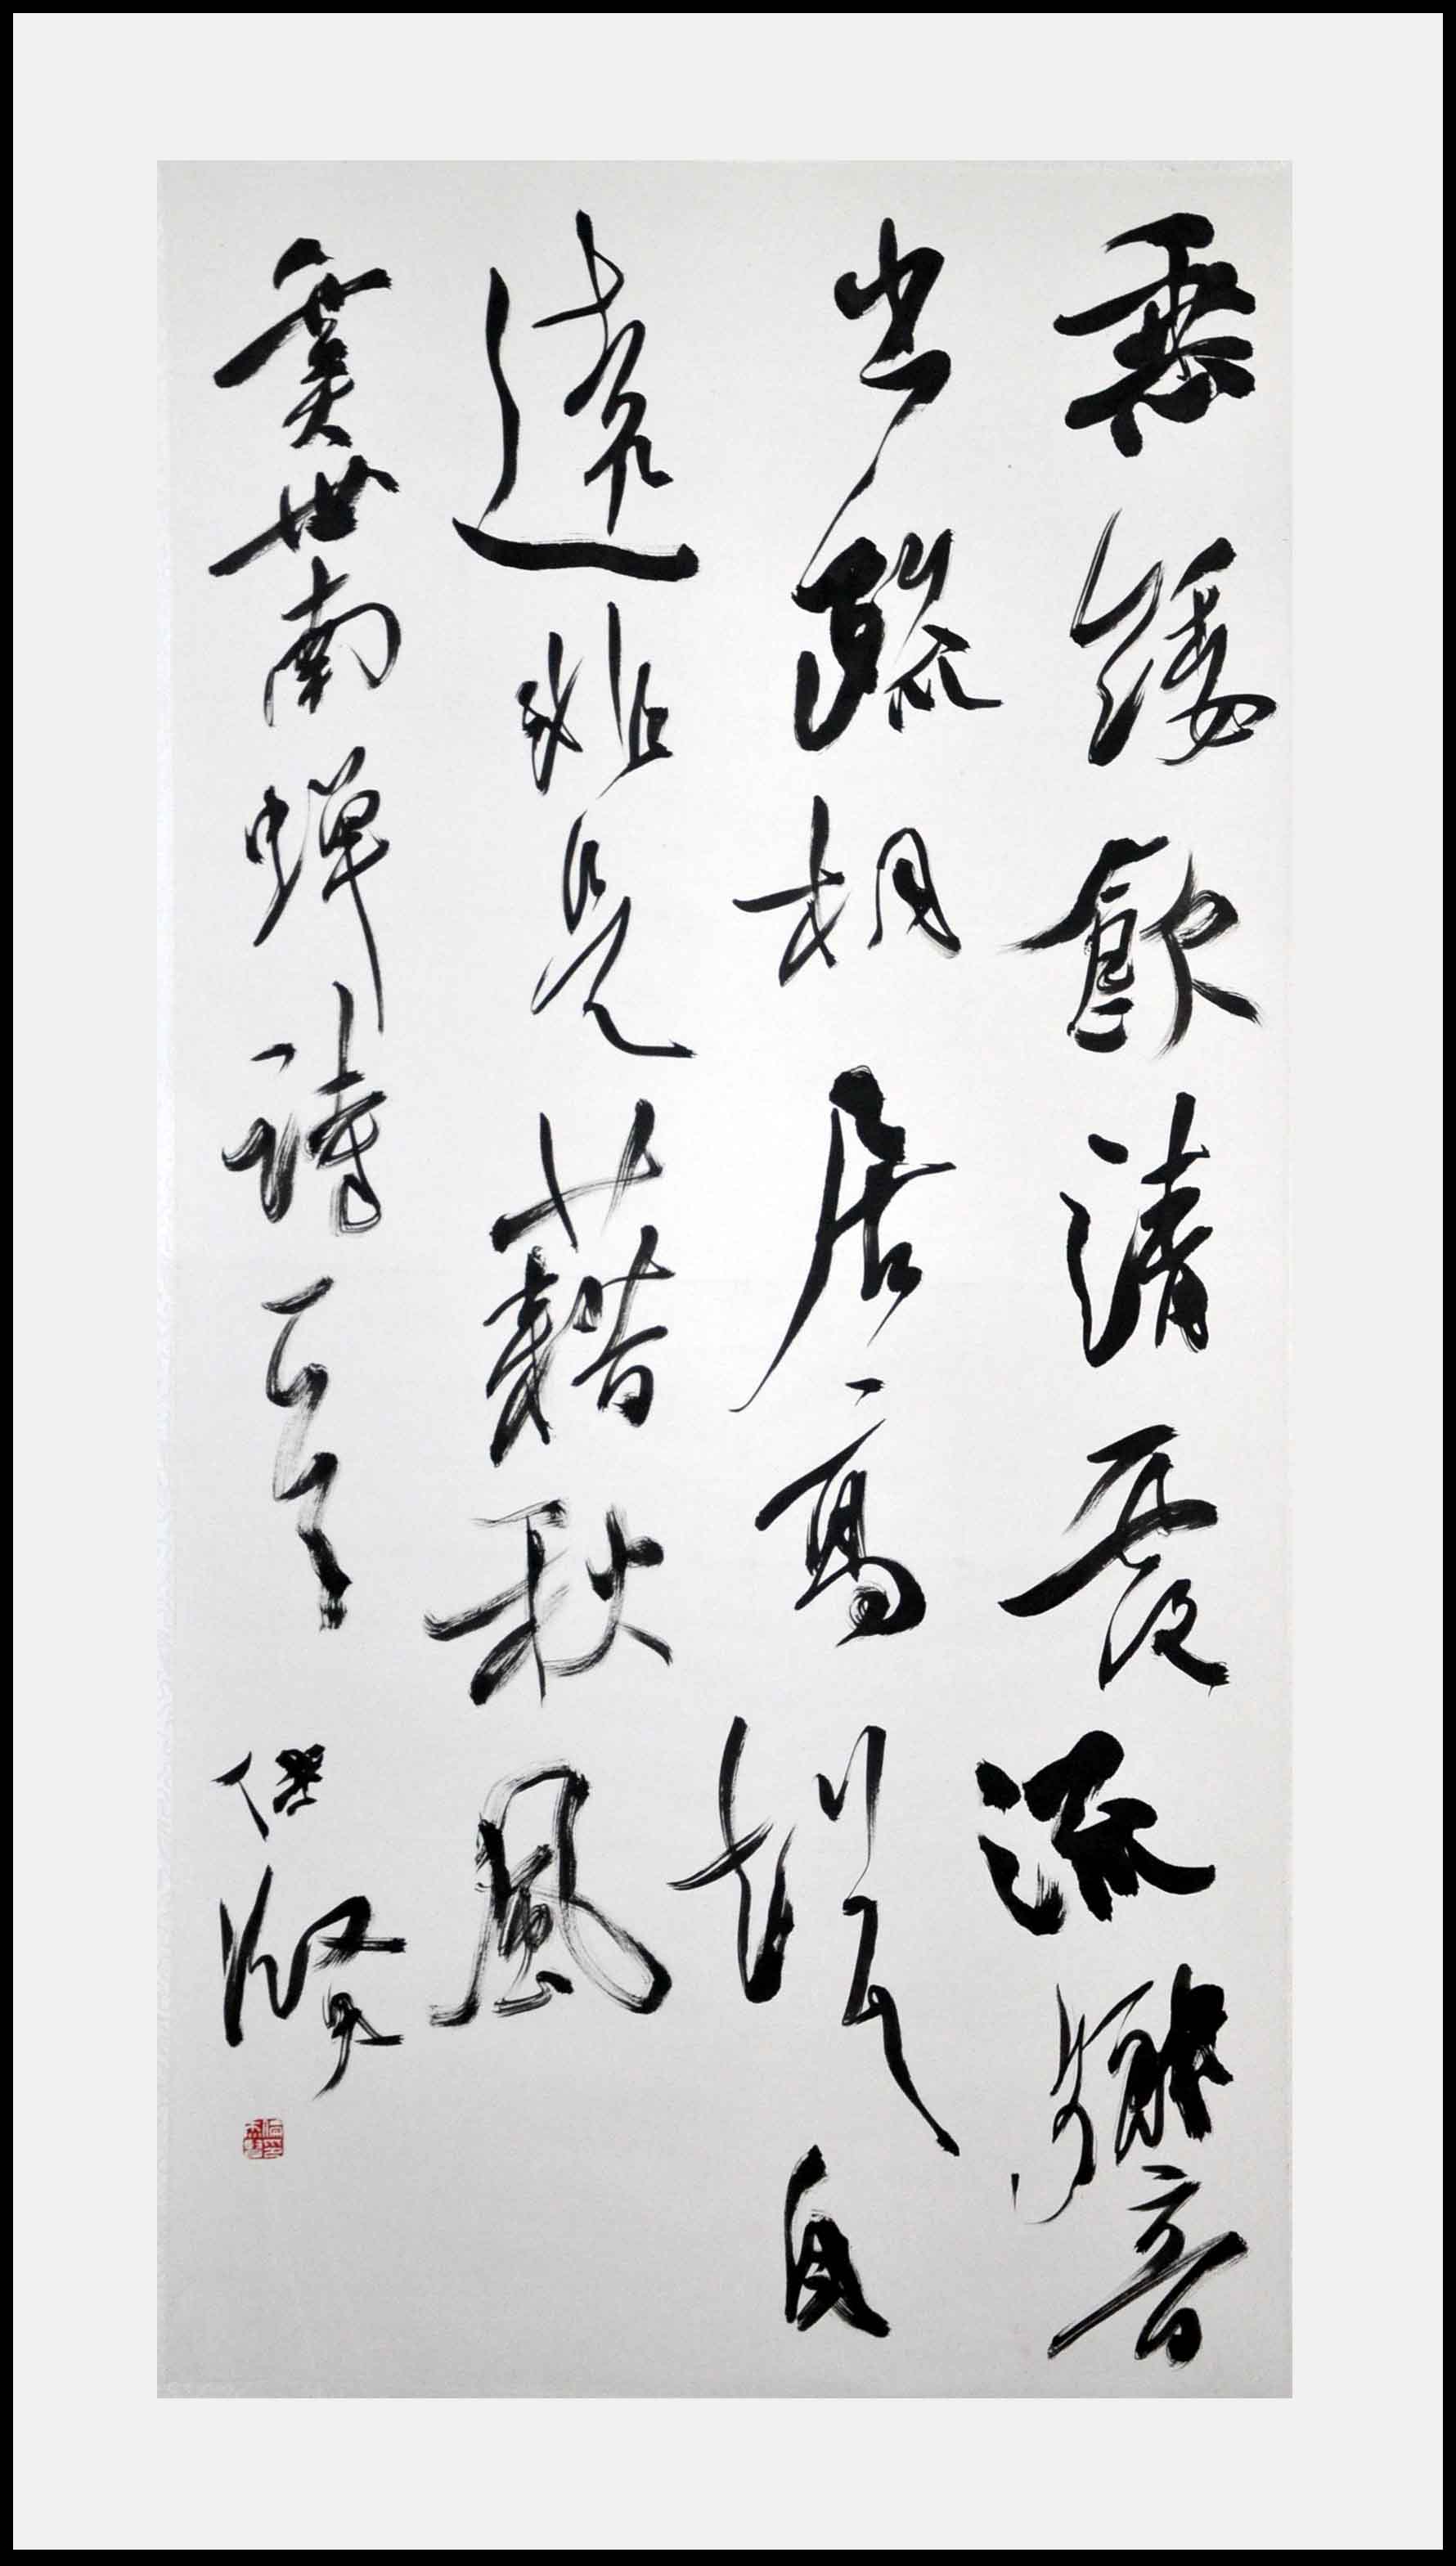 垂緌飲清露流響
出疏桐居高聲自
遠非是藉秋風
虞世南蟬詩一首